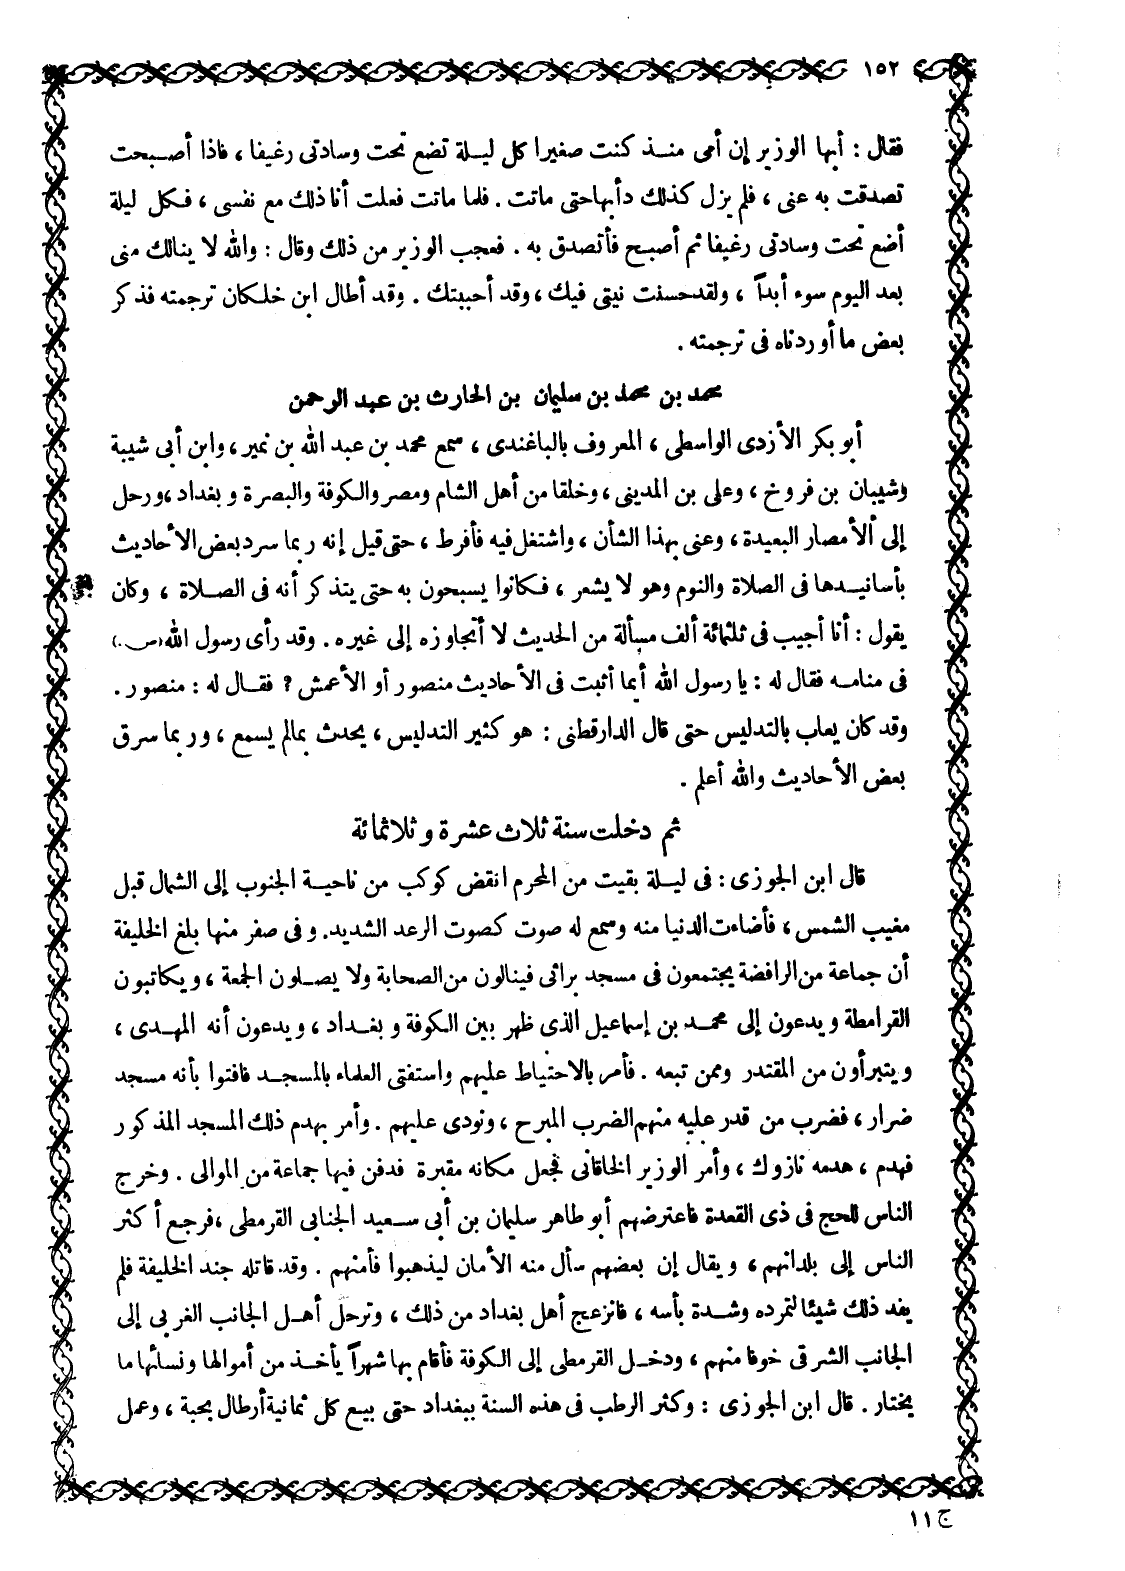 ١٥٢
فقال : أيها الوزير إن أمى منــذ كنت صغيرا كل ليــلة تضع تحت وسادتى رغيفا ، فاذا أصــبحت
تصدقت به عنى ، فلم يزل كذلك دأبها حتى ماتت . فلما ماتت فعلت أنا ذلك مع نفسى ، فــكل ليلة
أضع تحت وسادتى رغيفا ثم أصبح فأتصدق به . فعجب الوزير من ذلك وقال : والله لا ينالك منى
بعد اليوم سوء أبداً ، ولقد حسنت نيتى فيك ، وقد أحببتك . وقد أطال ابن خلــكان ترجمته فذكر
بعض ما أوردناه فى ترجمته .
محمد بن محمد بن سليمان بن الحارث بن عبد الرحمن
أبو بكر الأزدى الواسطى ، المعروف بالباغندى ، سمع محمد بن عبد الله بن نمير ، وابن أبى شيبة
وشيبان بن فروخ ، وعلى بن المدينى ، وخلقا من أهل الشام ومصر والكوفة والبصرة وبغداد ، ورحل
إلى الأمصار البعيدة ، وعنى بهذا الشأن ، واشتغل فيه فأفرط ، حتى قيل إنه ربما سرد بعض الأحاديث
بأسانيــدها فى الصلاة والنوم وهو لا يشعر ، فــكانوا يسبحون به حتى يتذكر أنه فى الصــلاة ، وكان
يقول : أنا أجيب فى ثلثمائة ألف مسألة من الحديث لا أتجاوزه إلى غيره . وقد رأى رسول الله (ص.)
فى منامــه فقال له : يا رسول الله أيما أثبت فى الأحاديث منصور أو الأعمش ? فقــال له : منصور .
وقد كان يعاب بالتدليس حتى قال الدارقطنى : هو كثير التدليس ، يحدث بما لم يسمع ، وربما سرق
بعض الأحاديث والله أعلم .
ثم دخلت سنة ثلاث عشرة وثلاثمائة
قال ابن الجوزى : فى ليلة بقيت من المحرم انقض كوكب من ناحيــة الجنوب إلى الشمال قبل
مغيب الشمس ، فأضاءت الدنيا منه وسمع له صوت كصوت الرعد الشديد . وفى صفر منها بلغ الخليفة
أن جماعة من الرافضة يجتمعون فى مسجد براثى فينالون من الصحابة ولا يصــلون الجمعة ، ويكاتبون
القرامطة ويدعون إلى محمــد بن إسماعيل الذى ظهر بين الكوفة وبغــداد ، ويدعون أنه المهــدى ،
ويتبرأون من المقتدر وممن تبعه . فأمر بالاحتياط عليهم واستفتى العلماء بالمسجــد فافتوا بأنه مسجد
ضرار ، فضرب من قدر عليه منهم الضرب المبرح ، ونودى عليهم . وأمر بهدم ذلك المسجد المذكور
فهدم ، هدمه نازوك ، وأمر الوزير الخاقانى فجعل مكانه مقبرة فدفن فيها جماعة من الموالى . وخرج
الناس للحج فى ذى القعدة فاعترضهم أبو طاهر سليمان بن أبى ســعيد الجنابى القرمطى ، فرجع أكثر
الناس إلى بلدانهم ، ويقال إن بعضهم سأل منه الأمان ليذهبوا فأمنهم . وقد قاتله جند الخليفة فلم
يفد ذلك شيئا لتمرده وشــدة بأسه ، فانزعج أهل بغداد من ذلك ، وترحل أهــل الجانب الغربى إلى
الجانب الشرقى خوفا منهم ، ودخــل القرمطى إلى الكوفة فأقام بها شهراً يأخــذ من أموالها ونسائها ما
يختار . قال ابن الجوزى : وكثر الرطب فى هذه السنة ببغداد حتى بيع كل ثمانية أرطال بحبة ، وعمل
ج ١١